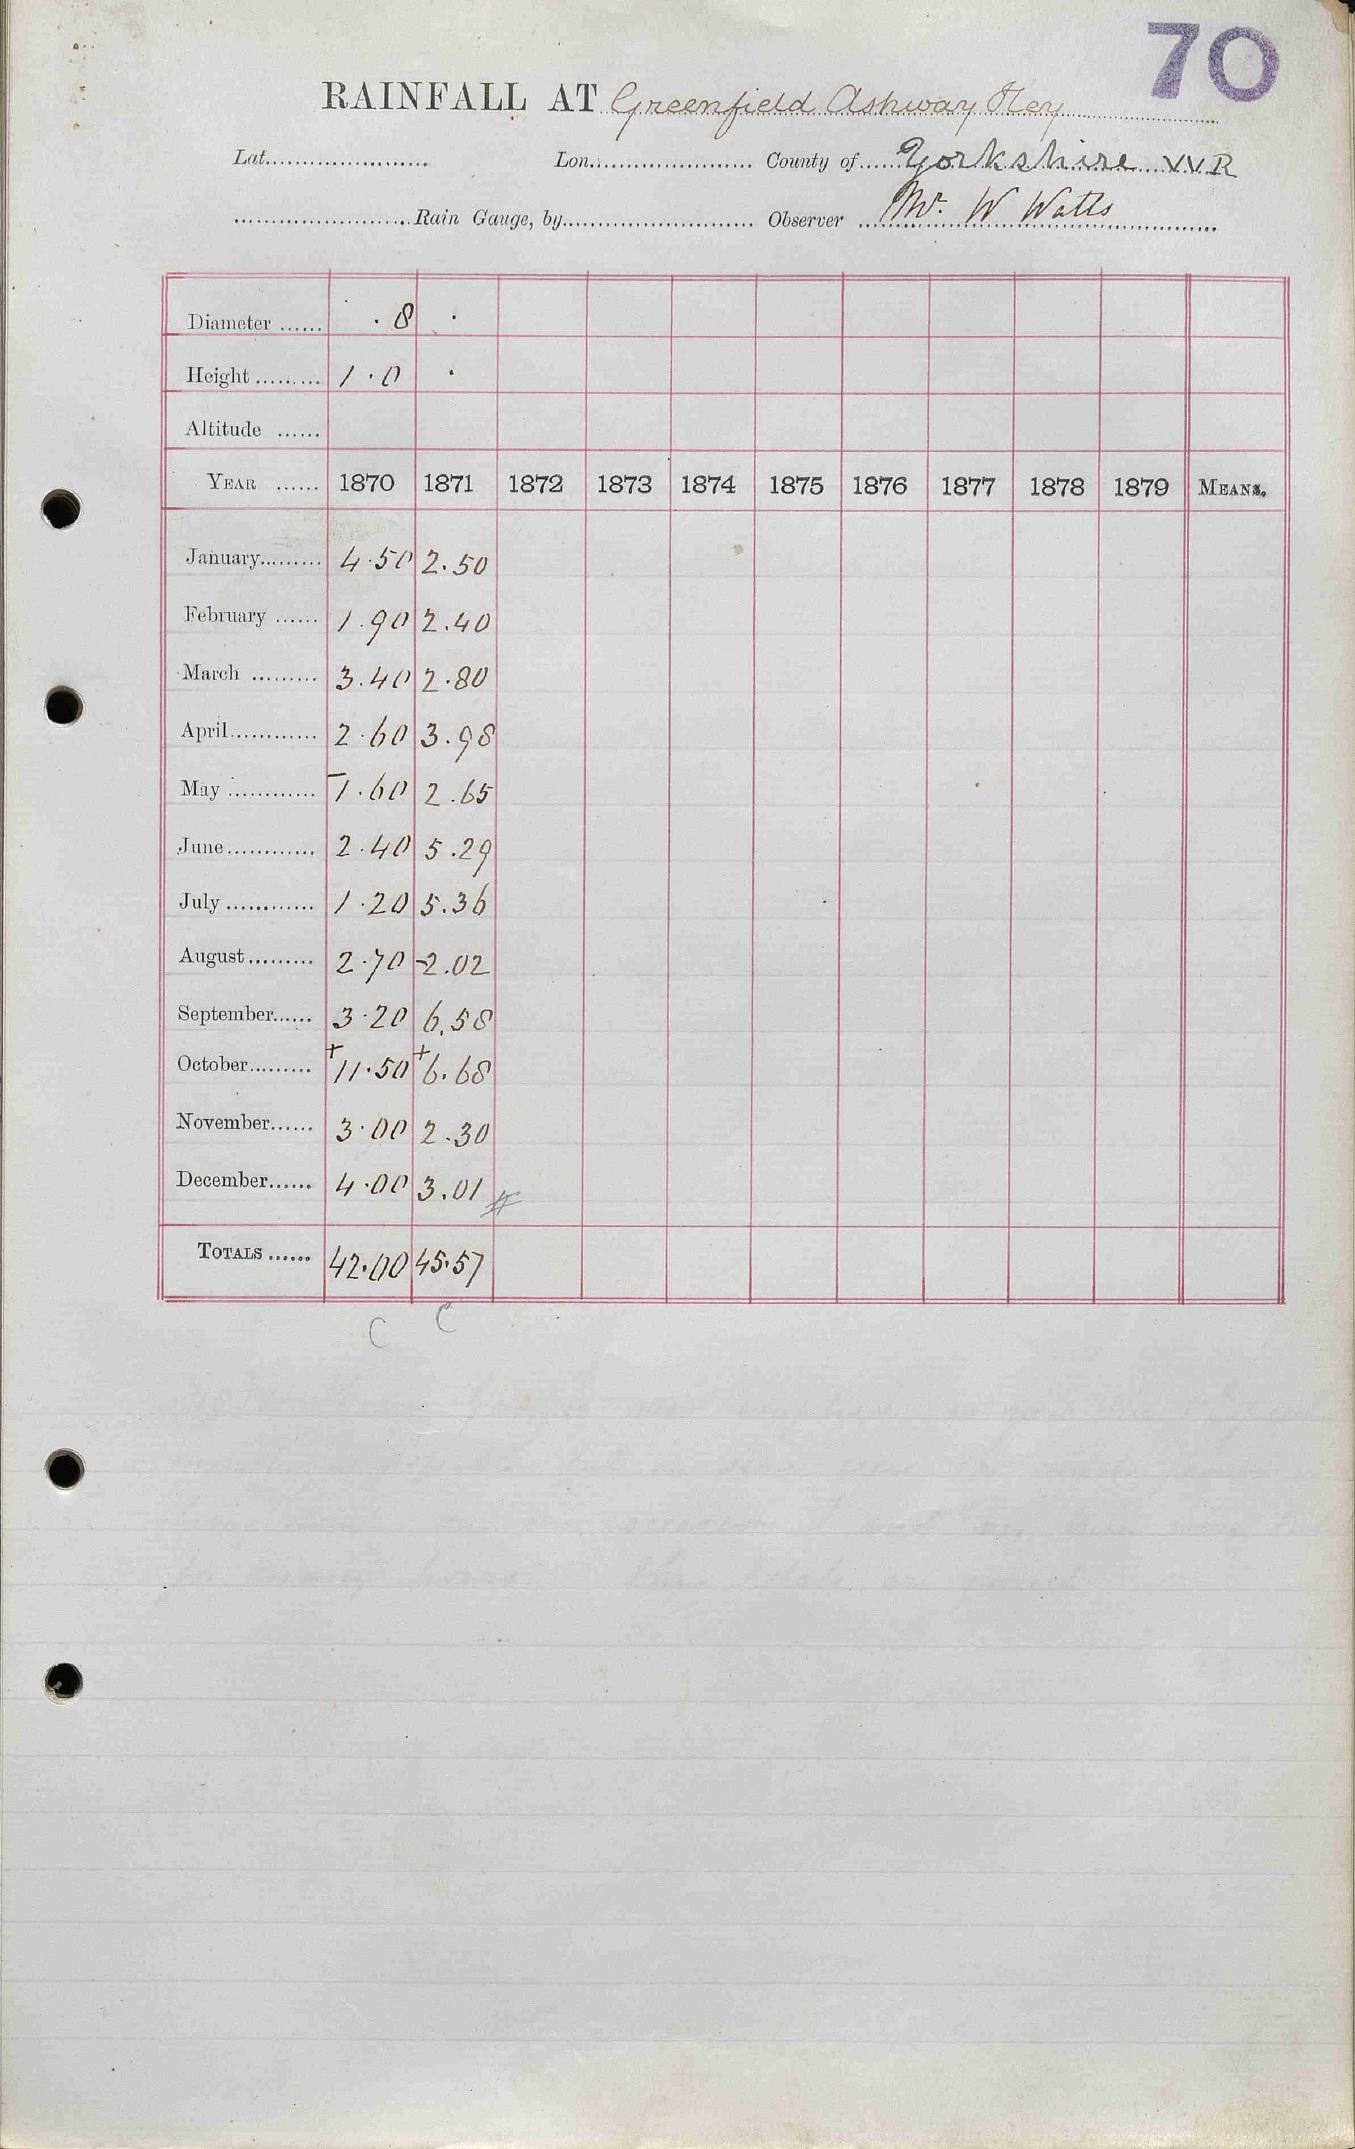 70
RAINFALL AT Greenfield Ashway Hey
Lat. Lon. County of Yorkshire W R
Rain Gauge, by Observer Mr. W Watts
Diameter ...... . 8 .
Height ......... 1 . 0 .
Altitude ......
YEAR ...... 1870 1871 1872 1873 1874 1875 1876 1877 1878 1879 MEANS.
January......... 4.50 2.50
February ...... 1.90 2.40
March ......... 3.40 2.80
April............ 2.60 3.98
May ............ -1.60 2.65
June............ 2.40 5.29
July ............ 1.20 5.36
August......... 2.70 -2.02
September...... 3.20 6.58
October......... +11.50 +6.68
November...... 3.00 2.30
December...... 4.00 3.01 #
TOTALS ...... 42.00 45.57
C C